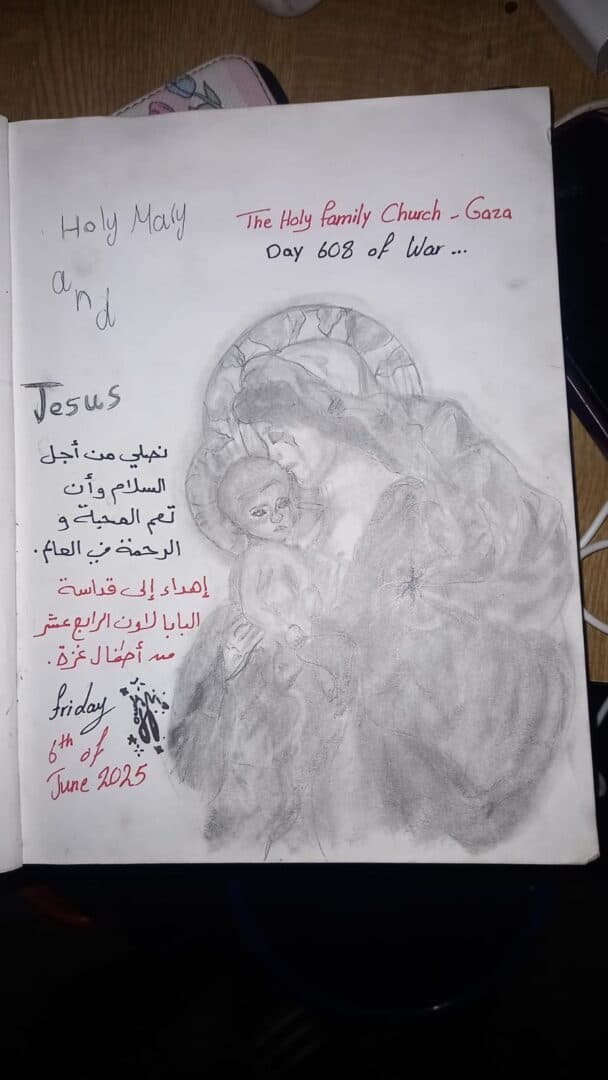 Holy Mary
and
Jesus
The Holy family Church - Gaza
Day 608 of War ...
نصلي من أجل
السلام وأن
تعم المحبة و
الرحمة في العالم.
إهداء إلى قداسة
البابا لاون الرابع عشر
من أطفال غزة.
friday
6th of
June 2025